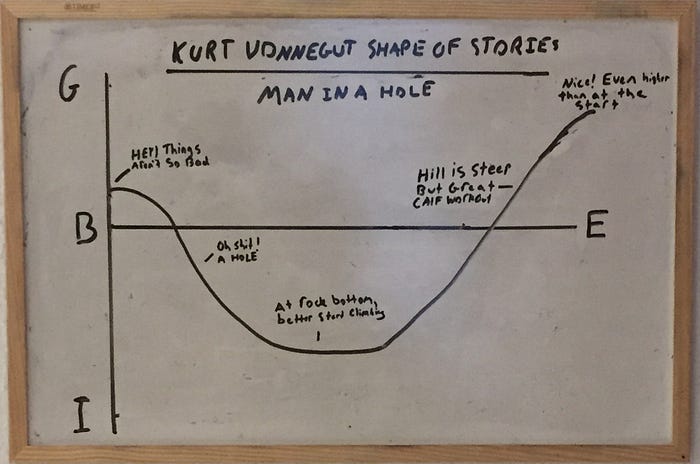 KURT VONNEGUT SHAPE OF STORIES
MAN IN A HOLE
G
Nice! Even higher
than at the
start
HEY! Things
Aren't So Bad
Hill is steep
But Great
CALF WORKOUT
B
E
Oh shit!
A HOLE
At rock bottom,
better start climbing
I